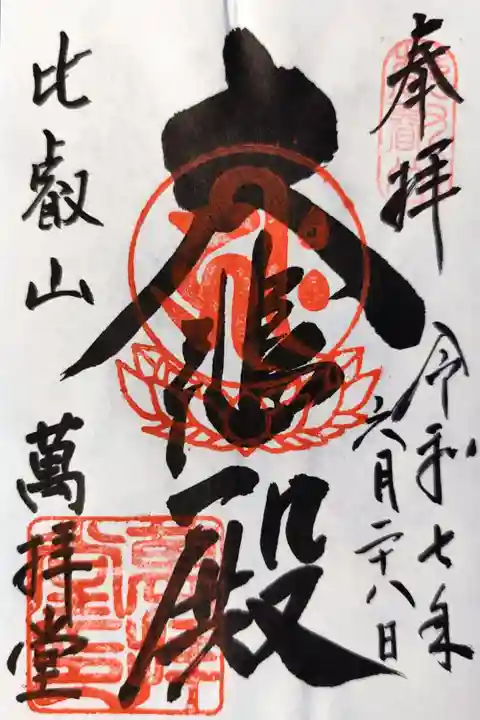 奉拝
令和七年
六月二十八日
大悲殿
比叡山
萬拝堂